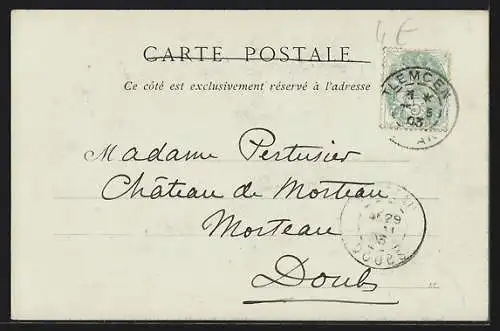 4€
CARTE POSTALE
Ce côté est exclusivement réservé à l'adresse
TLEMCEN
5
03
Madame Pertusier
Château de Morteau
Morteau
Doubs
29
DOUBS